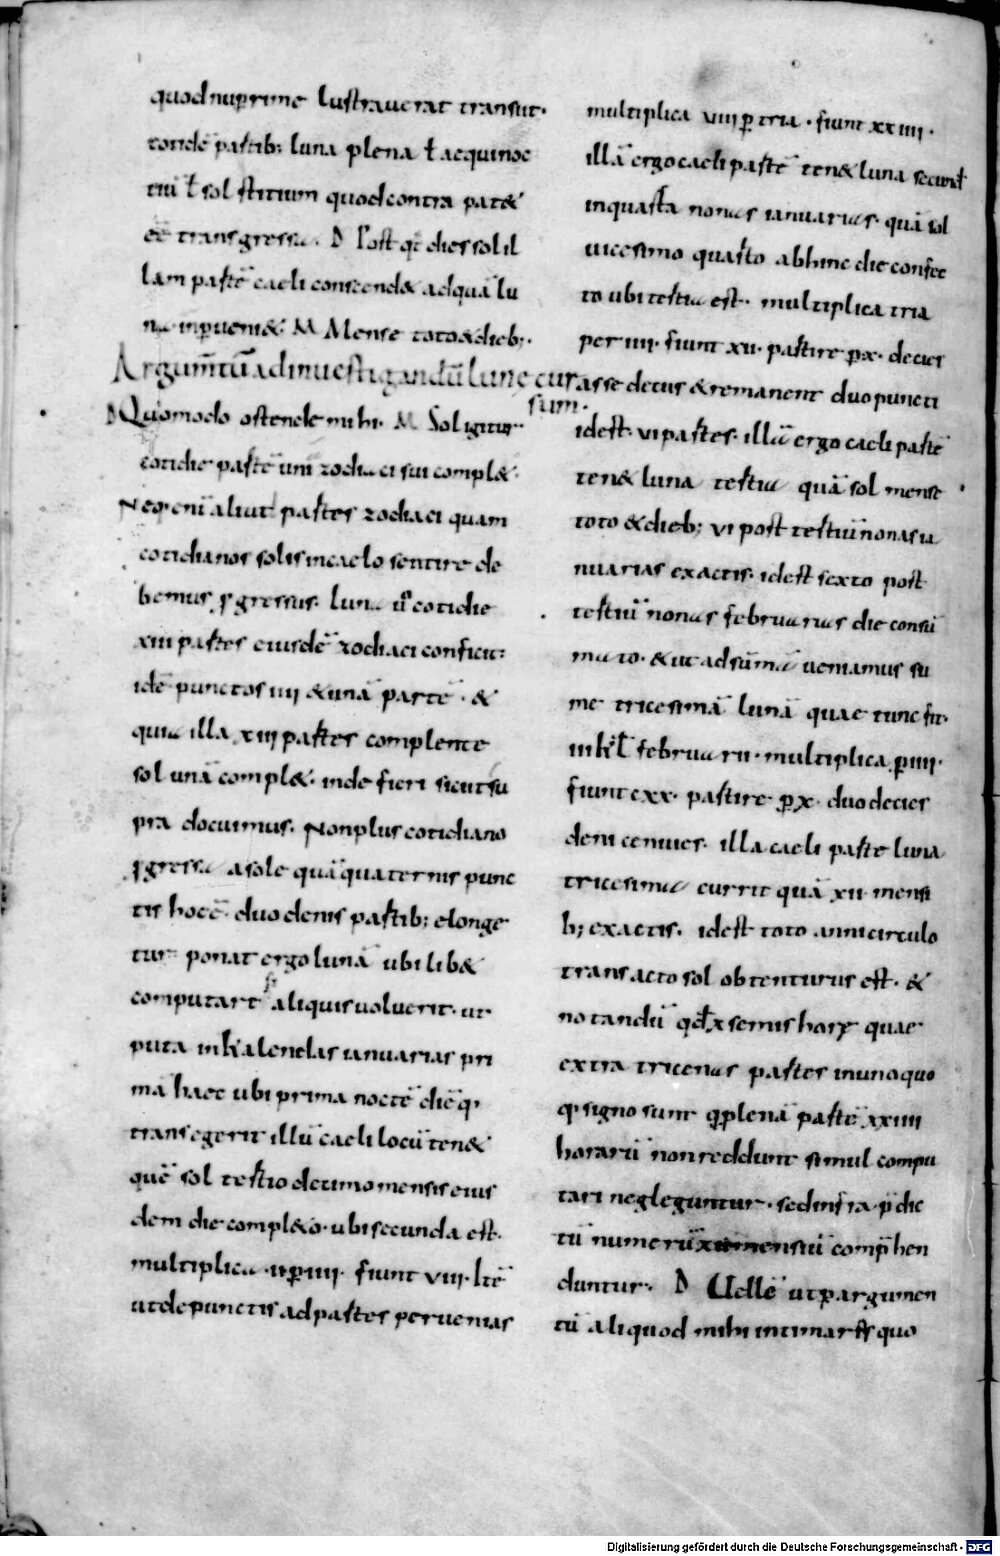 quod nup̄rime lustraverat transiit·
totidē partib; luna plena ł aequinoc
tiū ł solstitium quod contra pat&
eē transgressa. D Post q̄t dies sol il
lam partē caeli conscend& ad quā lu
na inp̄ueni&. M Mense toto & dieb;·
Argum̄tū ad inuestigandū lune cur
sum·
D Quomodo ostende mihi· M Sol igitur
cotidie partē unī zodiaci sui compl&·
Neq· enī aliut partes zodiaci quam
cotidianos solis in caelo sentire de
bemus ꝓgressus· luna ū cotidie
xiii partes eiusdē zodiaci conficit:
idē punctos iiii & unā partē· &
quia illa xiii partes complente
sol unā compl&· inde fieri sicut su
pra docuimus· Non plus cotidiano
ꝓgressu a sole quā quaternis punc
tis hoc ē· duodenis partib; elonge
tur ponat ergo lunā ubi lib&
computari aliquis uoluerit· ut
puta in kalendas ianuarias pri
mā haec ubi prima noctē diē q·
transegerit illū caeli locū ten&
quē sol tertio decimo mensis eius
dem die compl&o· ubi secunda est·
multiplica ·ii p̄ iiii· fiunt viii· ltē
ut de punctis ad partes peruenias
multiplica viiii p̄ tria· fiunt xxiiii·
illā ergo caeli partē ten& luna secund
in quarta nonas ianuarias· quā sol
uicesimo quarto abhinc die confec
to ubi tertia est· multiplica tria
per iiii· fiunt xii· partire p̄ x· decies
asse decies & remanent duo puncti
idest· vi partes· illā ergo caeli partē
ten& luna tertia quā sol mense
toto & dieb; vi post tertiū nonas ia
nuarias exactis· idest sexto post
tertiū nonas februarias die consū
mato· & ut ad sūmā ueniamus su
me tricesimā lunā quae tunc fit·
in kł februarii· multiplica p̄ iiii·
fiunt cxx· partire p̄ x· duodecies
deni centies· illa caeli parte luna
tricesima currit quā xii mensi
b; exactis· idest toto anni circulo
transacto sol obtenturus est· &
notandū qđ x semis horę quae
extra tricenas partes in unoquo
q· signo sunt q̄ plenā partē xxiiii
horarū non reddunt simul compu
tari negleguntur· sed infra p̄dic
tū numerū xii mensiū comp̄hen
duntur· D Uellē ut p̄ argumen
tū aliquod mihi intimares quo